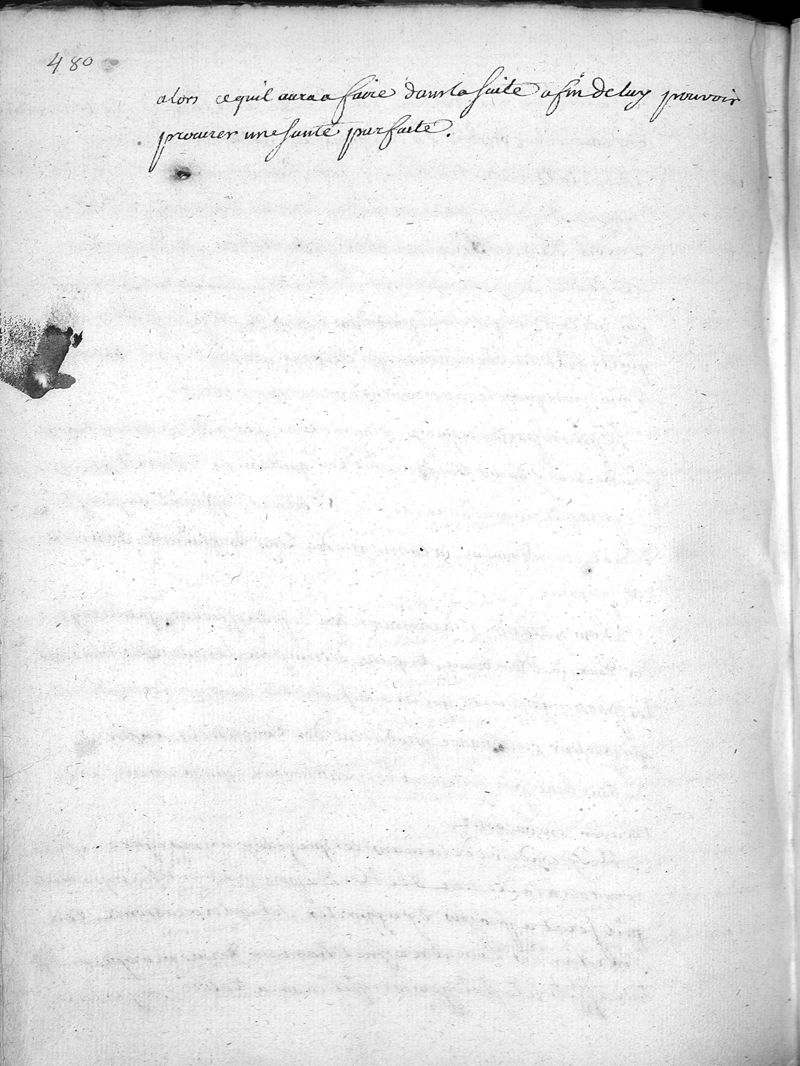 480
alors cequil auraa faire dans la suite afin de luy pouvoir
procurer une santé parfaite.